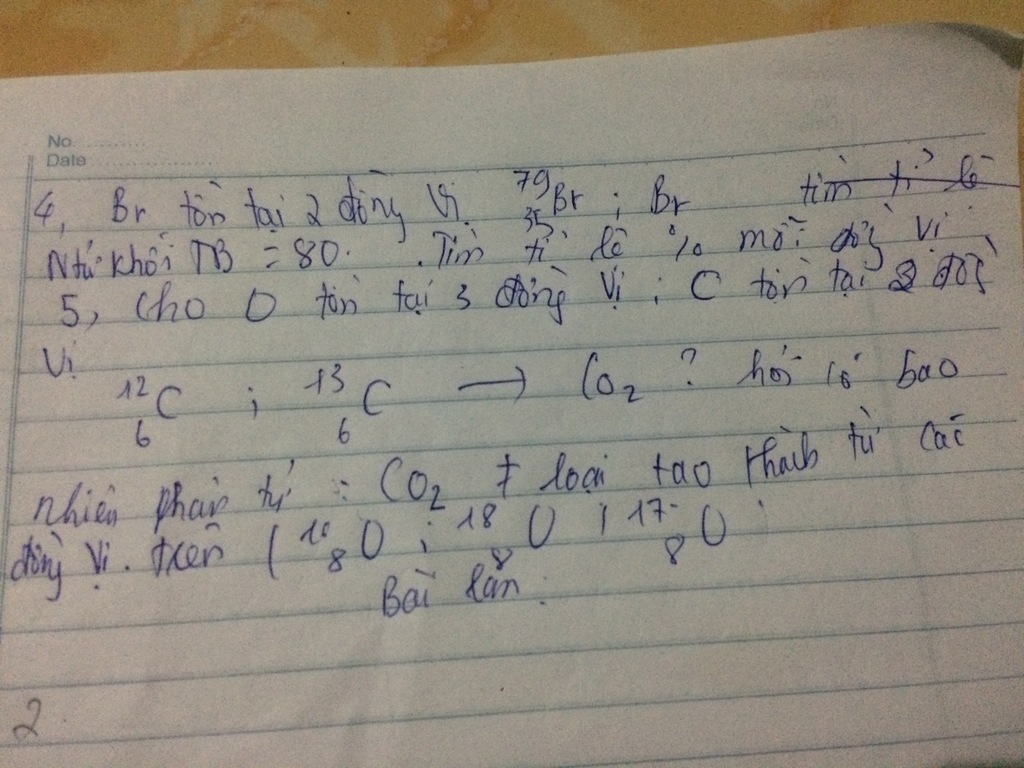 No.
Date
4, Br tồn tại 2 đồng vị ⁷⁹₃₅Br ; Br tìm tỉ lệ
Ntử khối TB = 80. Tìm tỉ lệ % mỗi đồng vị
5, Cho O tồn tại 3 đồng vị ; C tồn tại 2 đồng
vị
¹²₆C ; ¹³₆C → CO₂ ? hỏi có bao
nhiên phân tử : CO₂ ≠ loại tạo thành từ các
đồng vị . trên ( ¹⁶₈O ; ¹⁸₈O ; ¹⁷₈O
Bài làm :
2